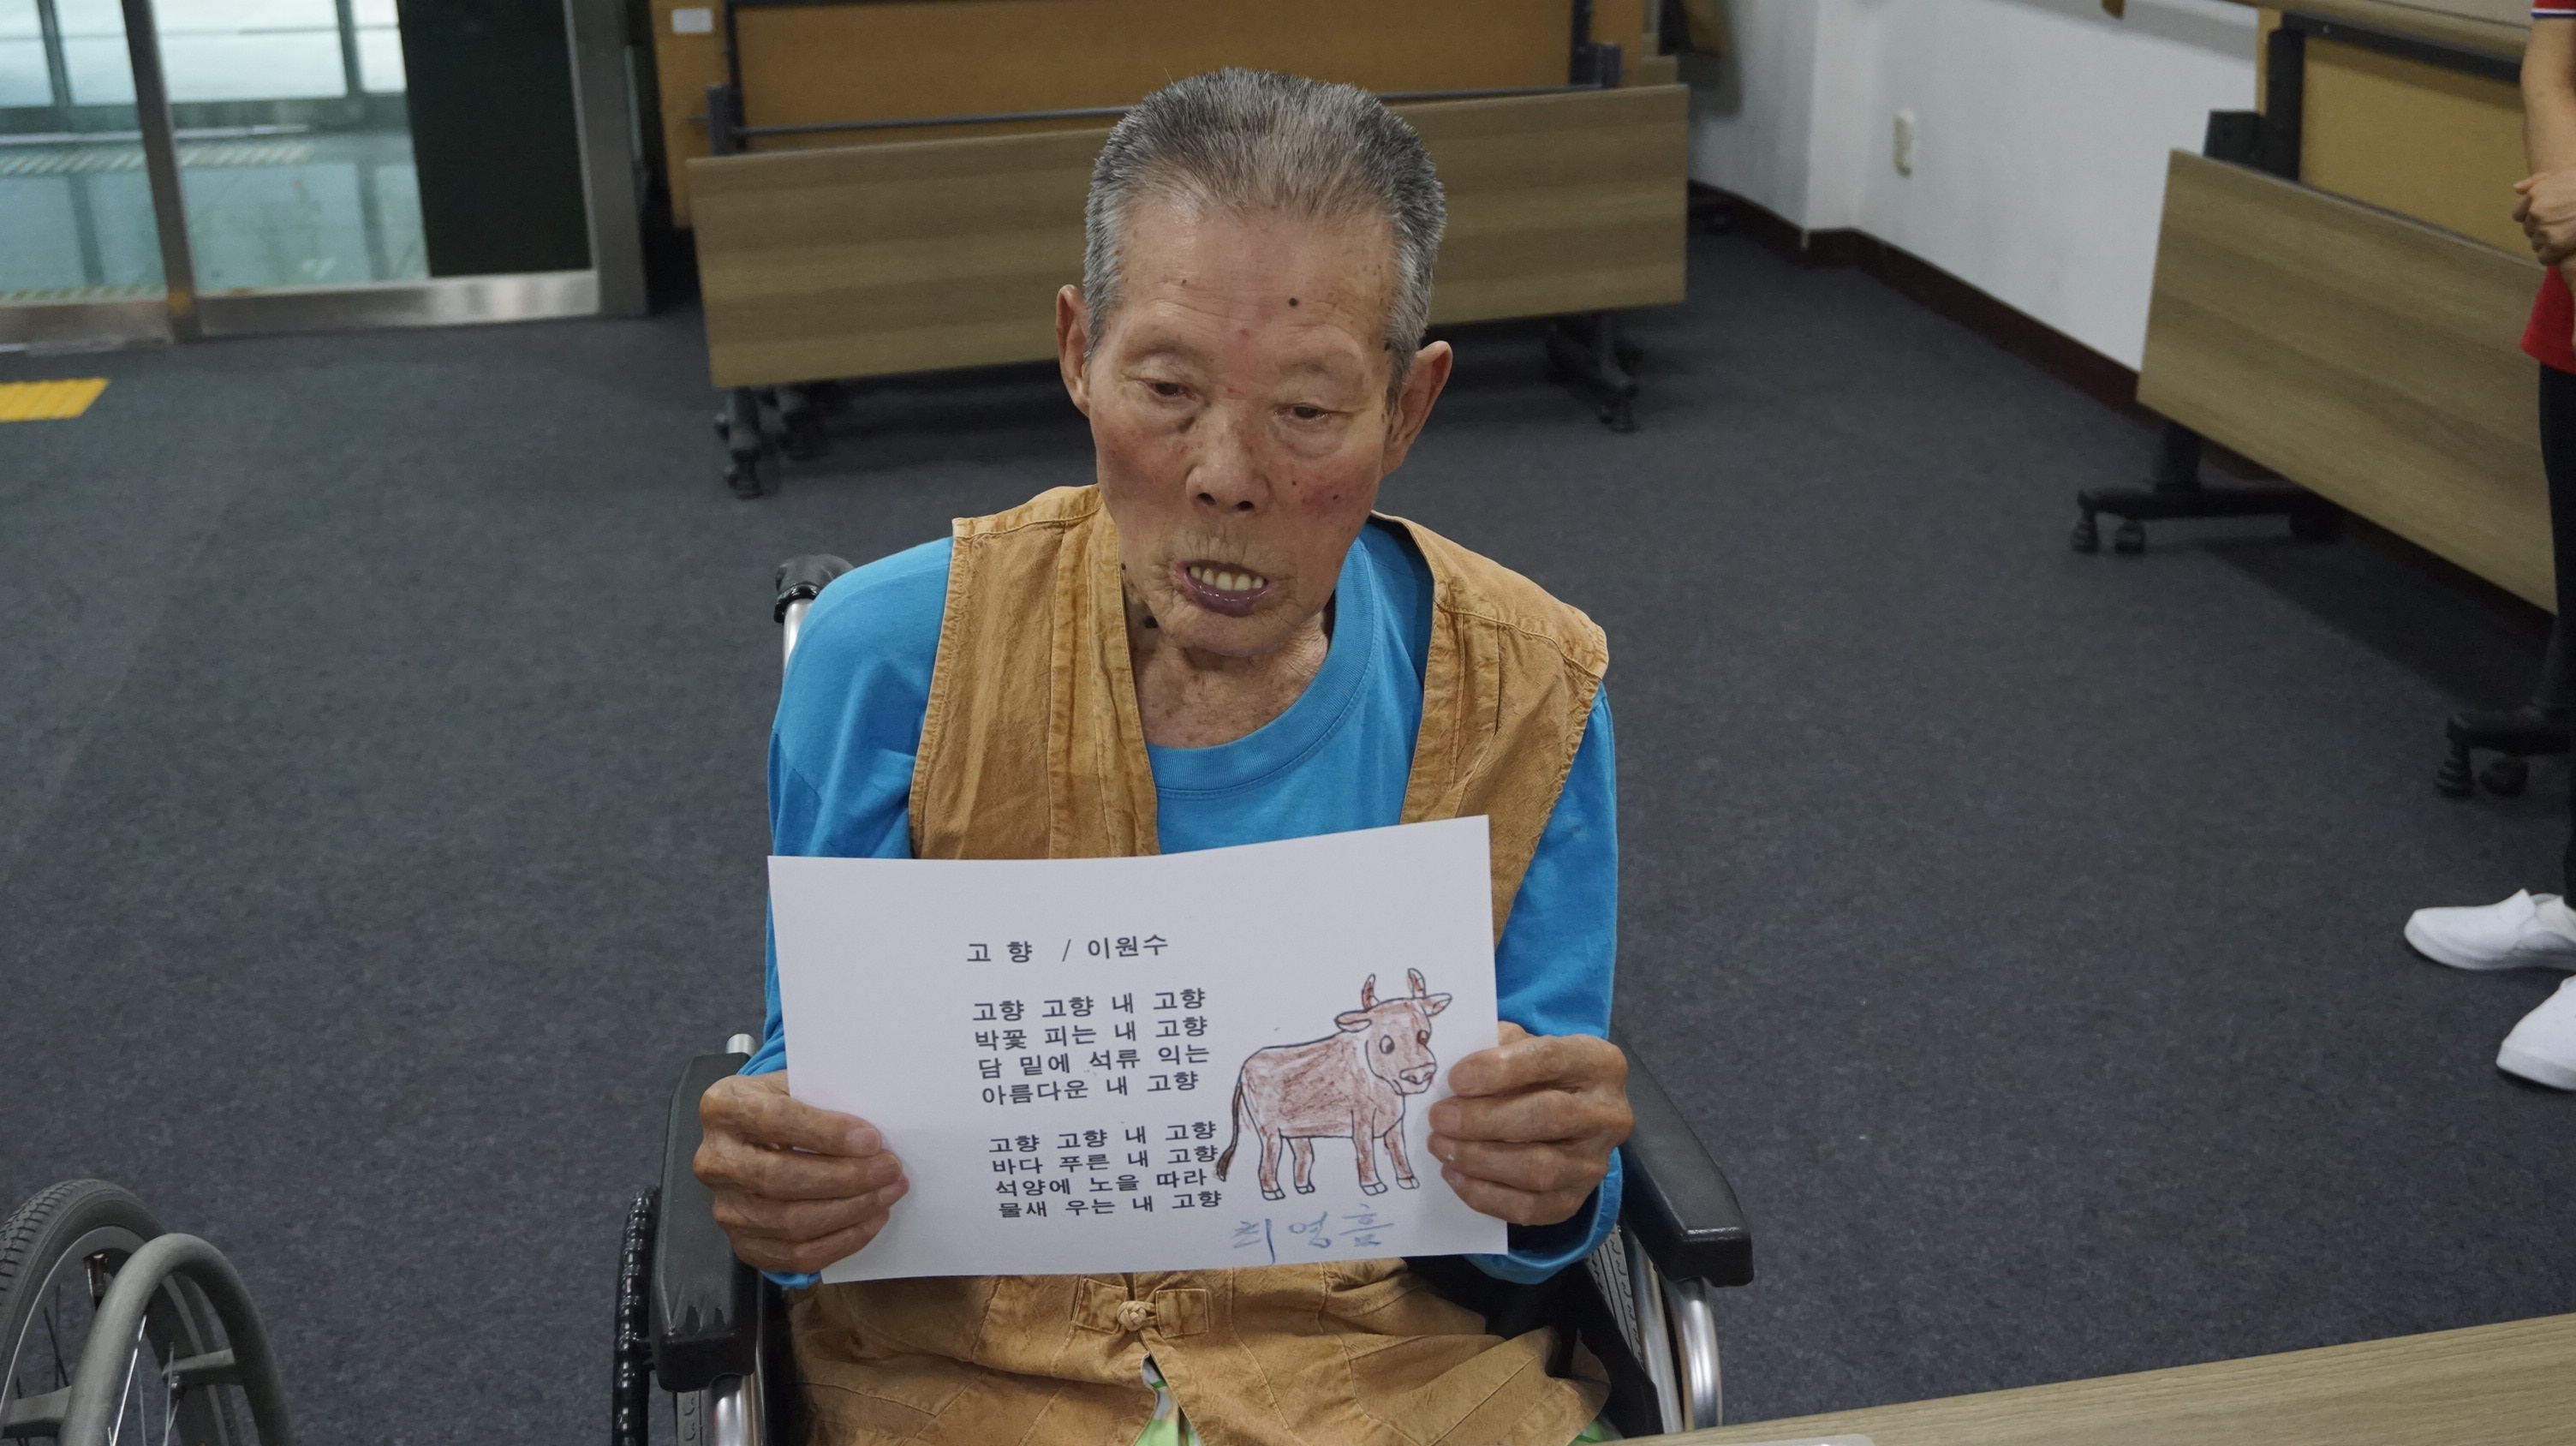 고 향 / 이원수
고향 고향 내 고향
박꽃 피는 내 고향
담 밑에 석류 익는
아름다운 내 고향
고향 고향 내 고향
바다 푸른 내 고향
석양에 노을 따라
물새 우는 내 고향
최영흠